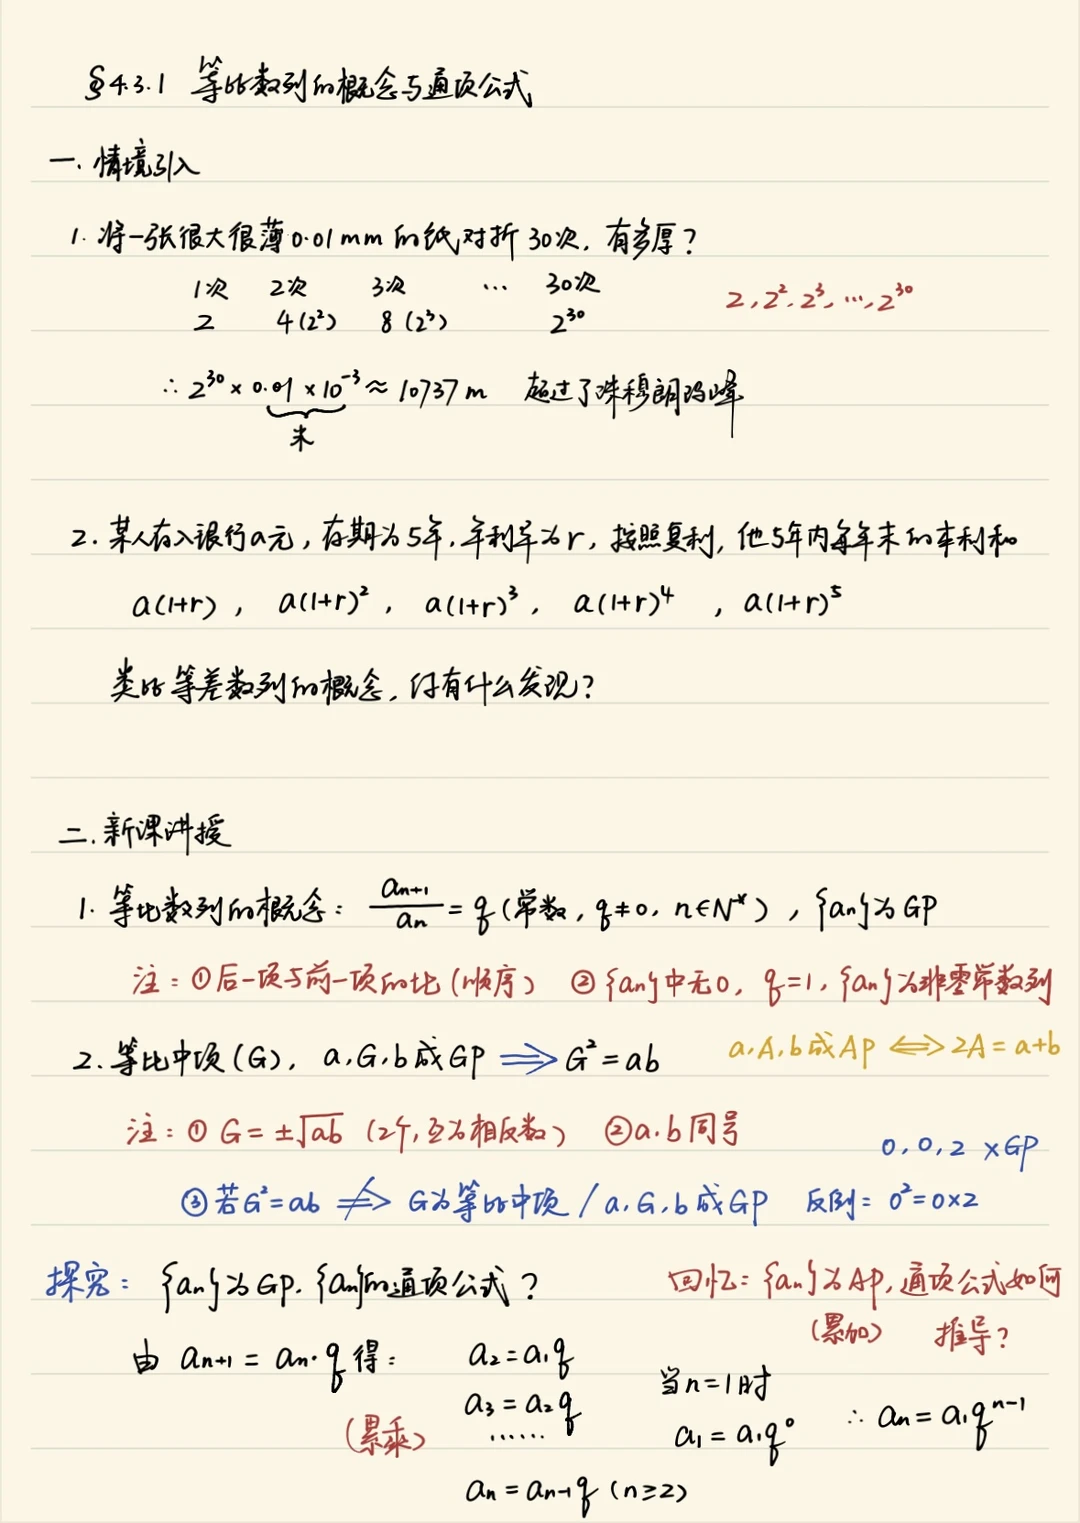 §4.3.1 等比数列的概念与通项公式
一.情境引入
1. 将一张很大很薄0.01mm的纸对折30次,有多厚?
1次 2次 3次 … 30次
2 4(2²) 8(2³) 2³⁰ 2,2²,2³,…,2³⁰
∴ 2³⁰×0.01×10⁻³≈10737m 超过了珠穆朗玛峰
米
2. 某人存入银行a元,存期为5年,年利率为r,按照复利,他5年内每年末的本利和
a(1+r), a(1+r)², a(1+r)³, a(1+r)⁴, a(1+r)⁵
类比等差数列的概念,你有什么发现?
二.新课讲授
1. 等比数列的概念: aₙ₊₁/aₙ=q(常数,q≠0,n∈N*),{an}为GP
注:①后一项与前一项的比(顺序) ②{an}中无0,q=1,{an}为非零常数列
2.等比中项(G),a,G,b成GP⟹G²=ab a,A,b成AP⟺2A=a+b
注:①G=±√ab (2个,互为相反数) ②a.b同号
0,0,2 ×GP
③若G²=ab ⇏ G为等比中项/a,G,b成GP 反例: 0²=0×2
探究: {an}为GP.{an}的通项公式? 回忆:{an}为AP,通项公式如何
(累加) 推导?
由 aₙ₊₁=aₙ·q得: a₂=a₁q
当n=1时
a₃=a₂q
(累乘) …… a₁=a₁q⁰ ∴ aₙ=a₁qⁿ⁻¹
aₙ=aₙ₋₁q (n≥2)